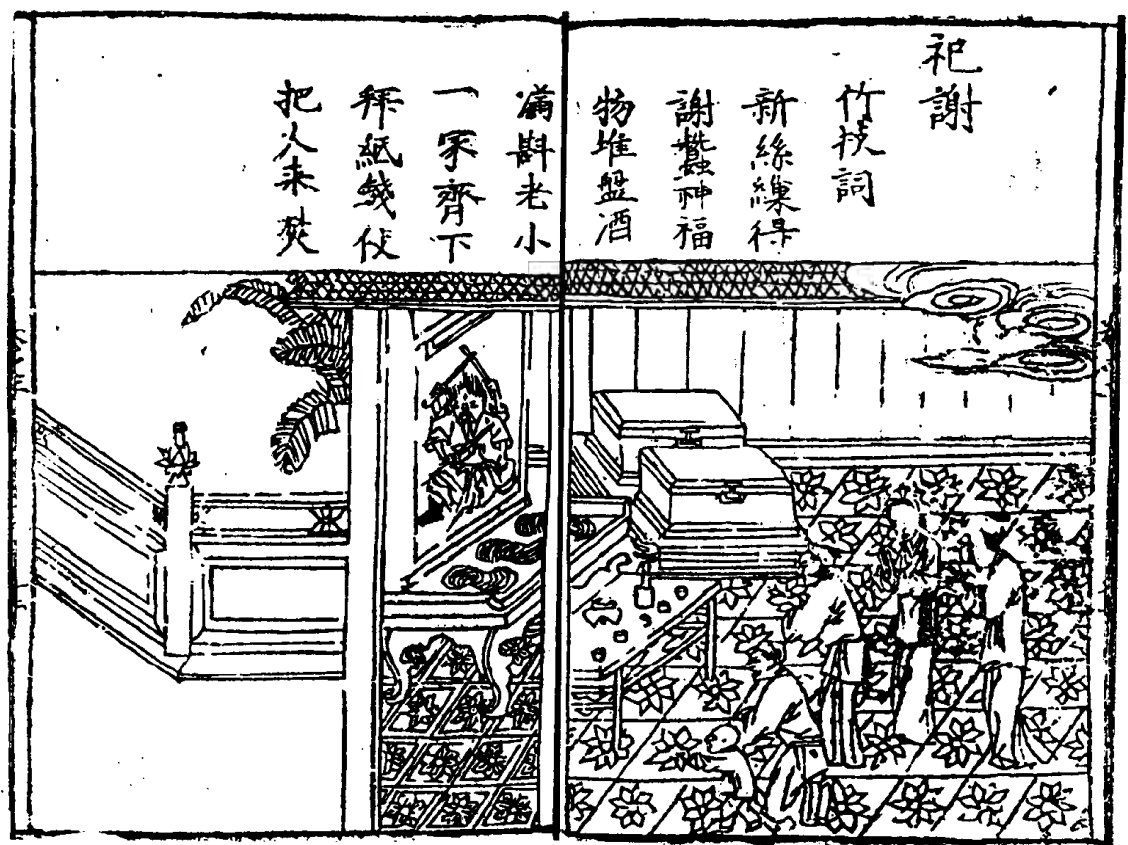 祀謝
竹枝詞
新絲繅得
謝蠶神福
物堆盤酒
滿斟老小
一家齊下
拜紙錢便
把火来焚